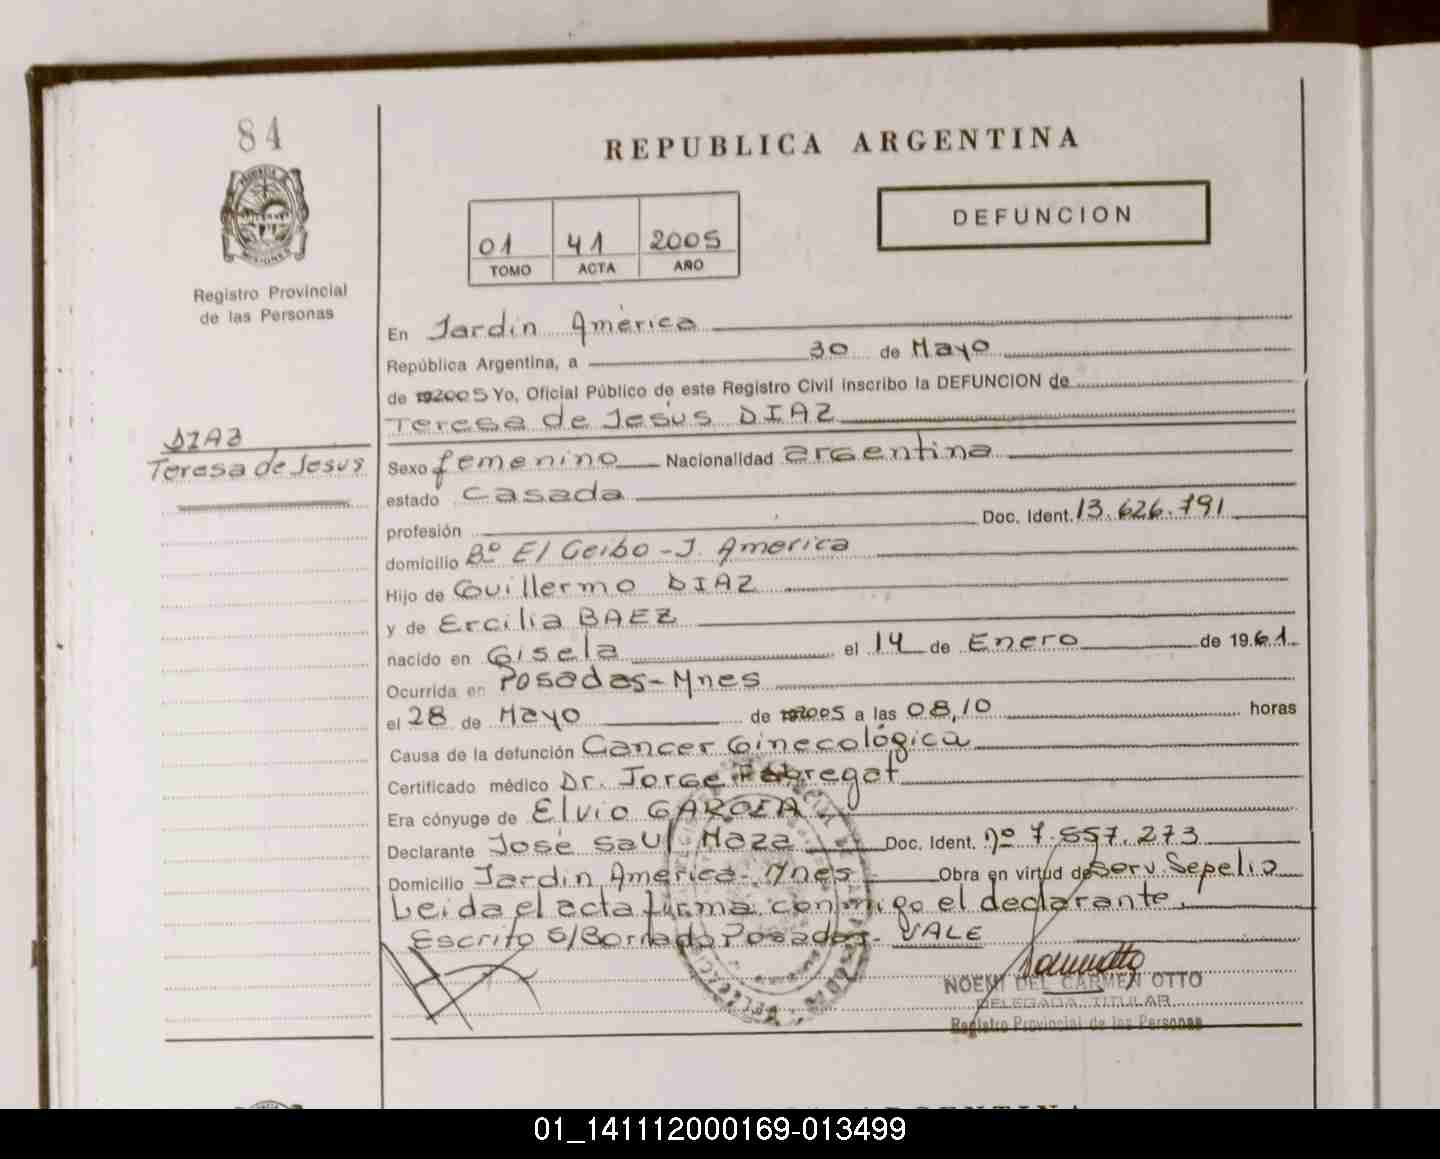 84
REPUBLICA ARGENTINA
DEFUNCION
01 41 2005
TOMO ACTA AÑO
Registro Provincial
de las Personas
En Jardín América
República Argentina, a 30 de Mayo
de 2005 Yo, Oficial Público de este Registro Civil inscribo la DEFUNCION de
Teresa de Jesús DIAZ
DIAZ
Teresa de Jesus
Sexo femenino Nacionalidad argentina
estado Casada
profesión Doc. Ident. 13.626.791
domicilio Bº El Ceibo - J. America
Hijo de Guillermo DIAZ
y de Ercilia BAEZ
nacido en Gisela el 14 de Enero de 1961
Ocurrida en Posadas - Mnes
el 28 de Mayo de 2005 a las 08,10 horas
Causa de la defunción Cancer Ginecológica
Certificado médico Dr. Jorge Fabregat
Era cónyuge de Elvio GARCIA
Declarante José Saul Maza Doc. Ident. nº 7.557.273
Domicilio Jardin América - Mnes Obra en virtud de Serv. Sepelio
Leida el acta firma conmigo el declarante.
Escrito S/Borrado Posadas - VALE
NOEMI DEL CARMEN OTTO
DELEGADA TITULAR
Registro Provincial de las Personas
01_141112000169-013499